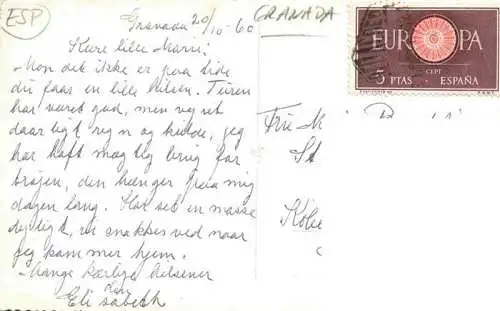 ESP
Granada 20/10-60
GRANADA
Kære lille Mami!
Mon det ikke er paa tide
du faar en lille hilsen. Turen
har været god, men vejret
daarligt regn og kulde, jeg
har haft mægtig brug for
trøjen, den hænger paa mig
dagen lang. Har set en masse
dejligt, vi snakkes ved naar
jeg kommer hjem.
Mange kærlige hilsener
Elisabeth
EUROPA
CEPT
5 PTAS · ESPAÑA
Fru